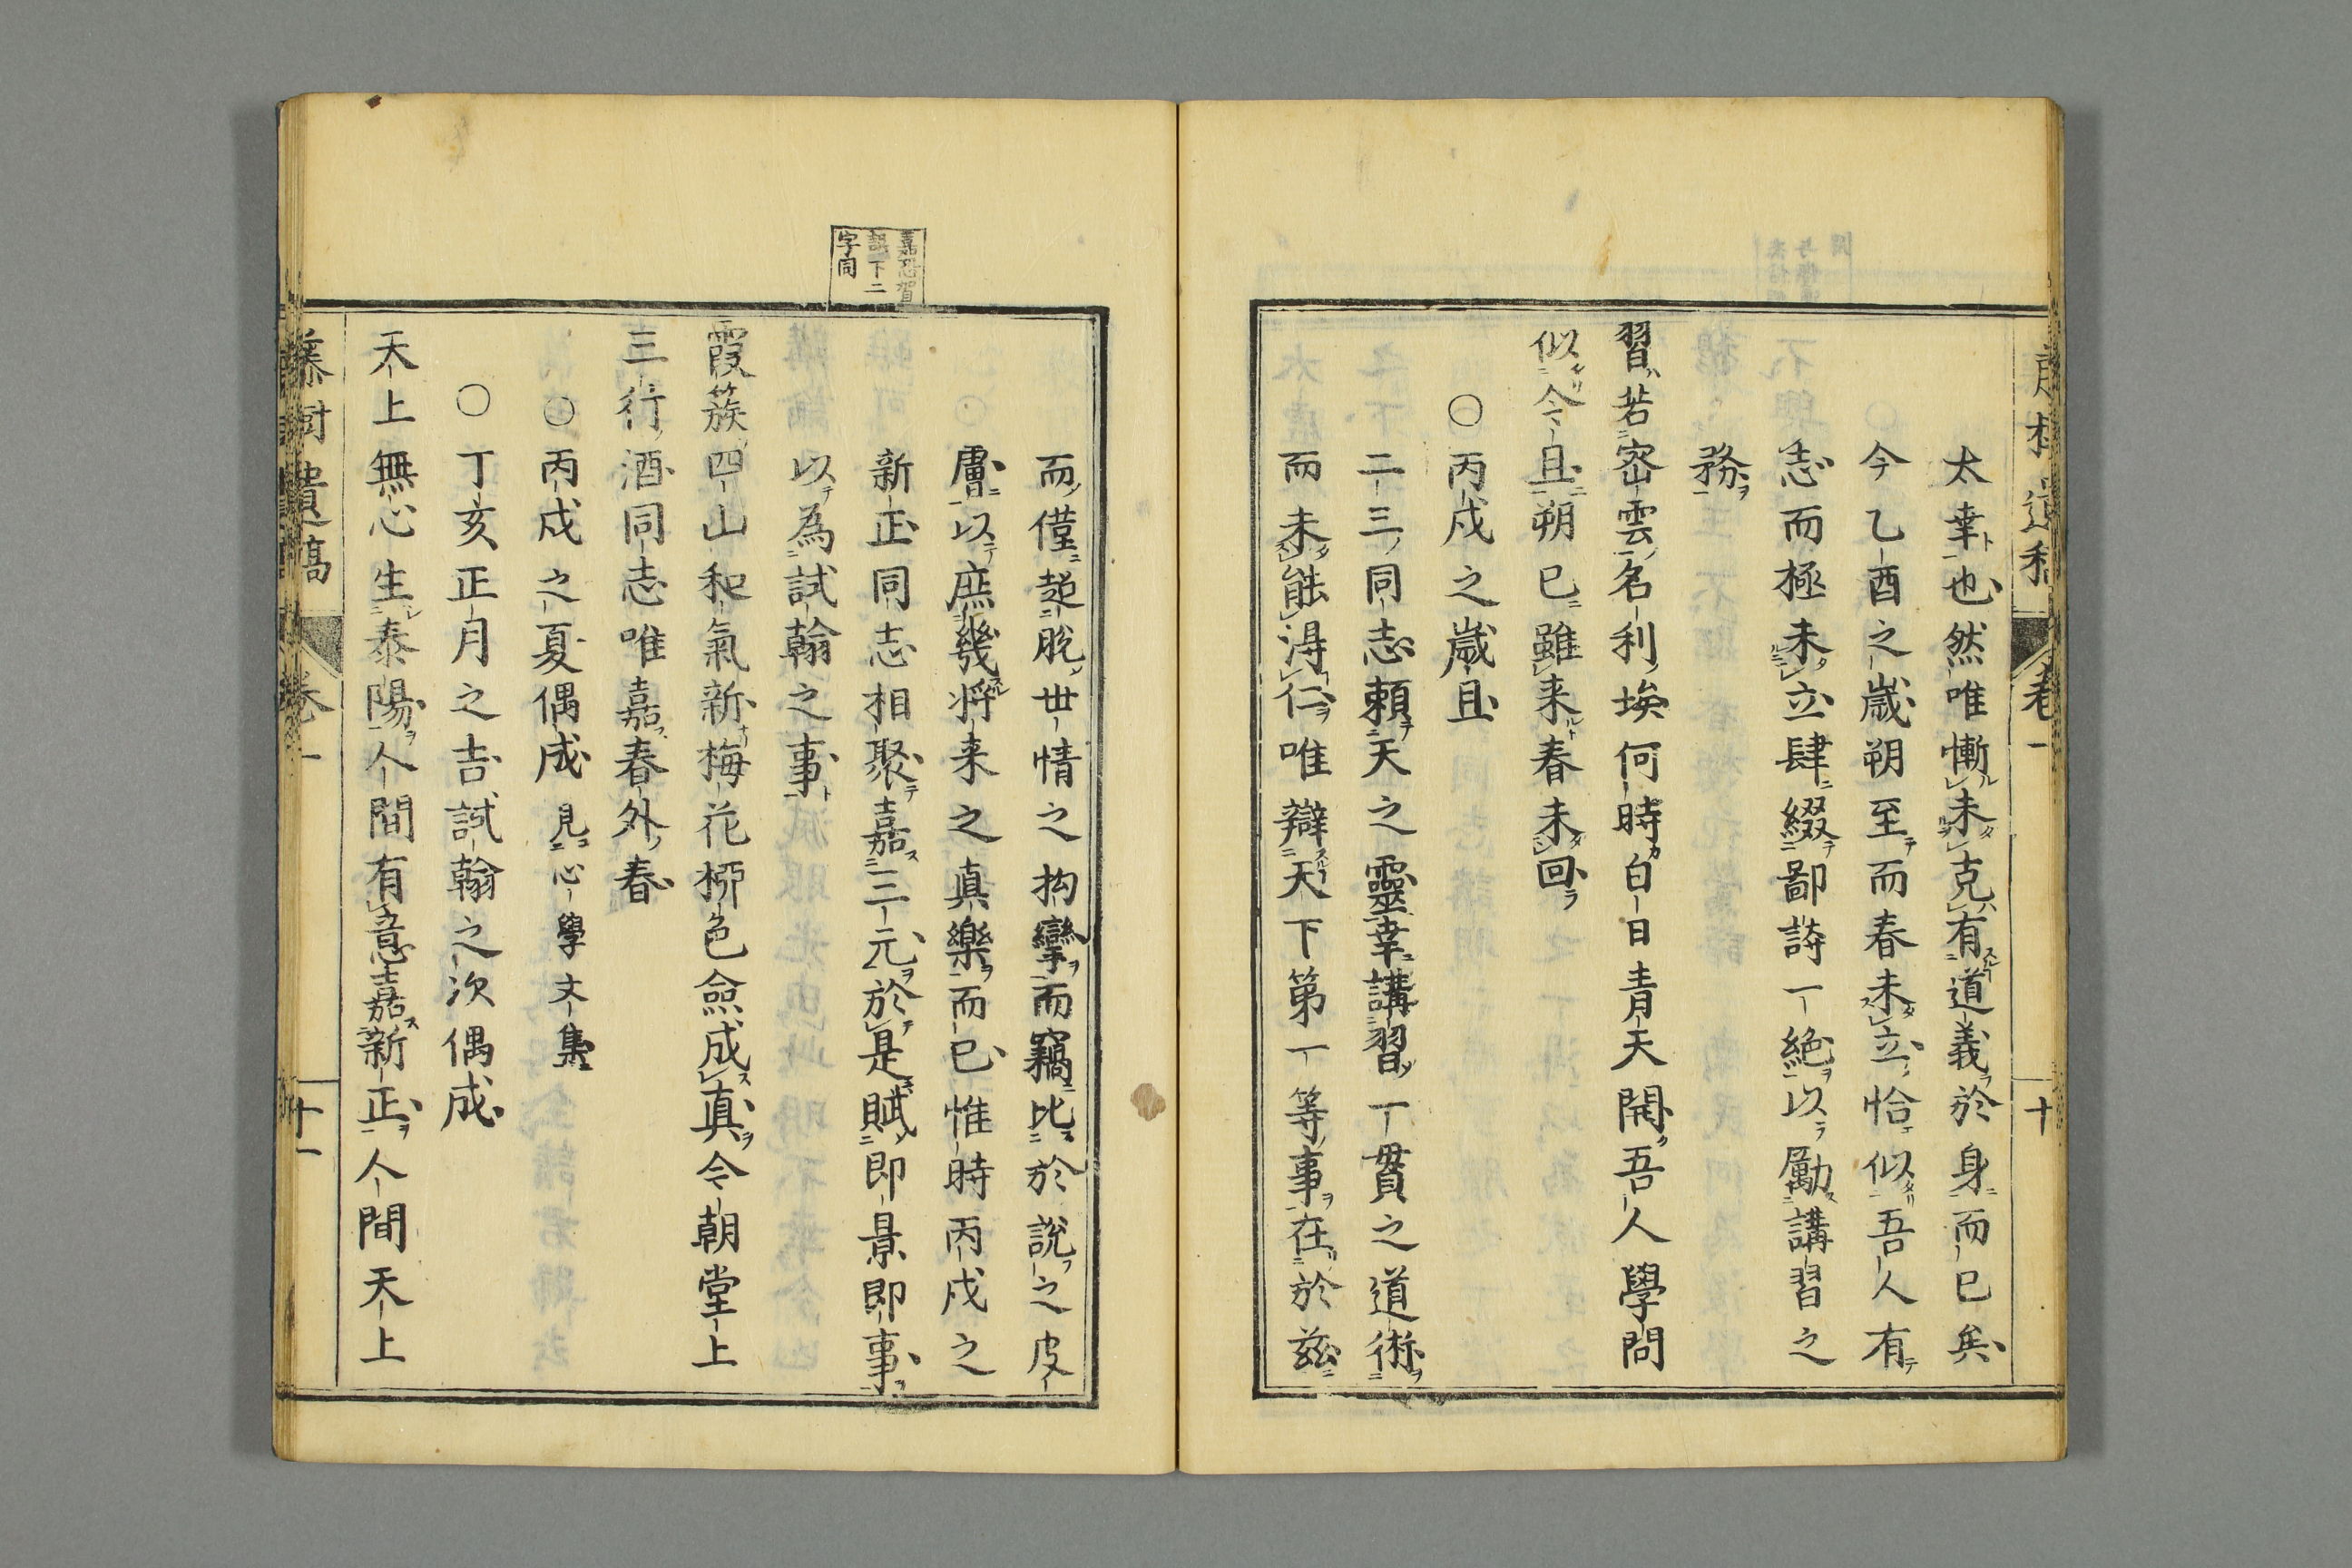 太幸也然唯慚未克有道義於身而已矣
今乙酉之歲朔至而春未立恰似吾人有
志而極未立肆綴鄙詩一絶以勵講習之
務
習若密雲名利埃何時白日青天開吾人學問
似今旦朔已雖来春未回
○丙戌之歲旦
二三同志賴天之靈幸講習一貫之道術
而未能得仁唯辯天下第一等事在於茲
而僅超脫世情之拘攣而竊比於說之皮
膚以庶幾将来之真樂而已惟時丙戌之
新正同志相聚嘉三元於是賦即景即事
以為試翰之事
霞簇四山和氣新梅花栁色僉成真今朝堂上
三行酒同志唯嘉春外春
○丙戌之夏偶成 見心學文集
○丁亥正月之吉試翰之次偶成
天上無心生泰陽人間有意嘉新正人間天上
嘉恐賀
下二
字同
卷一
十
藤樹遺稿
卷一
十一